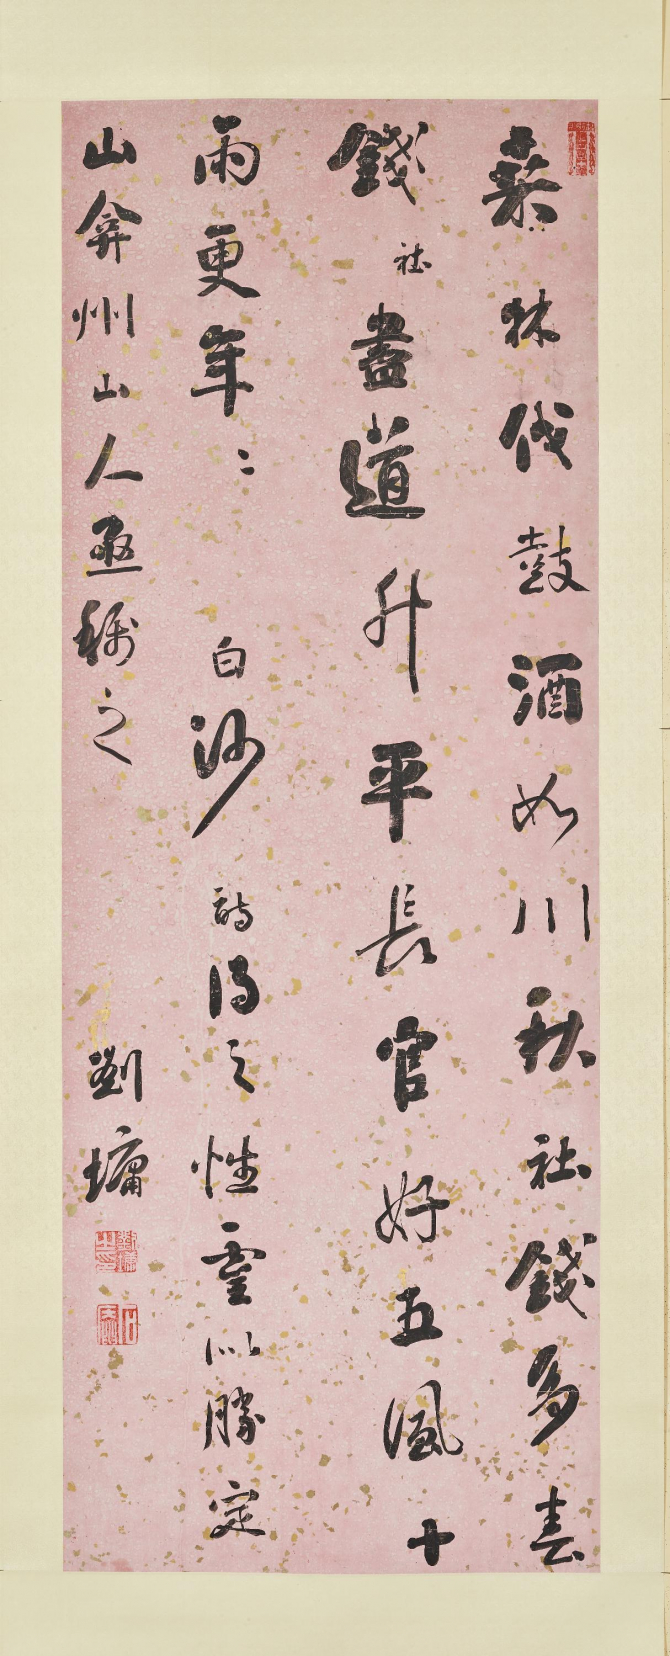 桑林伐鼓酒如川秋社錢多春
錢社盡道升平長官好五風十
雨更年〻白沙詩得之性靈以勝定
山弇州山人亟稱之劉墉
劉墉之印
石菴